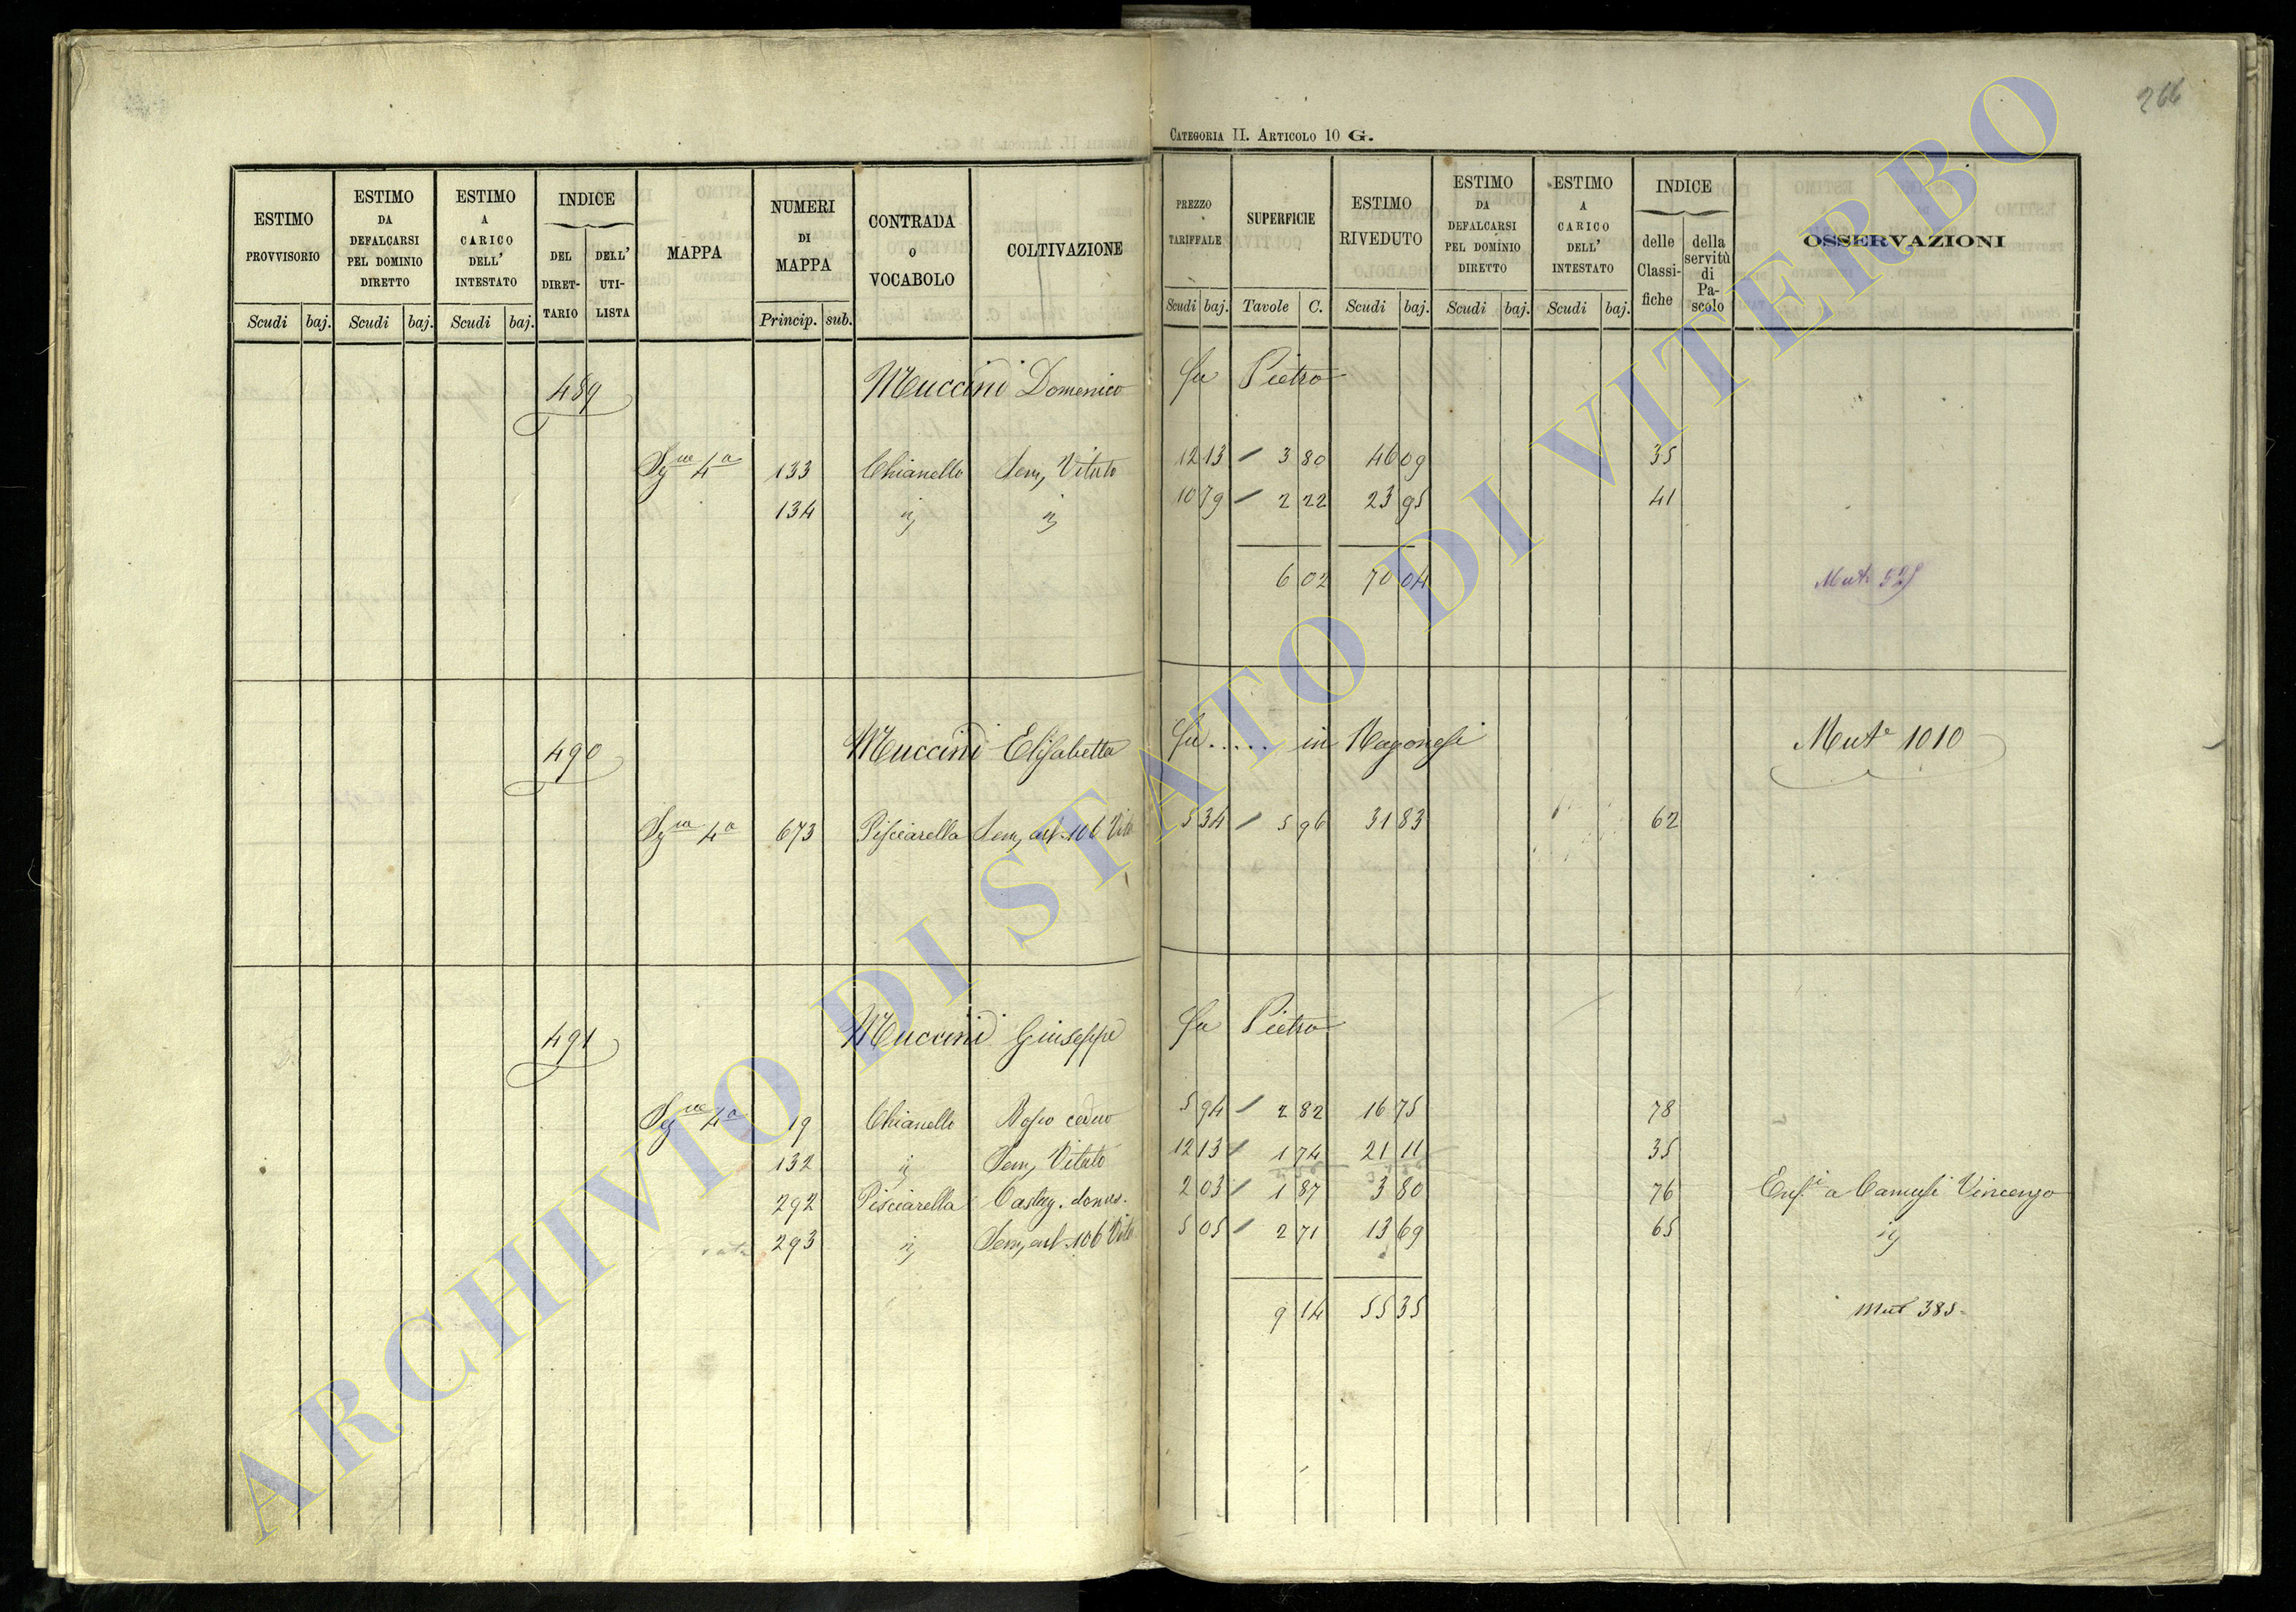 266
CATEGORIA II. ARTICOLO 10 G.
ESTIMO PROVVISORIO Scudi baj.
ESTIMO DA DEFALCARSI PEL DOMINIO DIRETTO Scudi baj.
ESTIMO A CARICO DELL' INTESTATO Scudi baj.
INDICE DEL DIRET-TARIO DELL' UTI-LISTA
MAPPA
NUMERI DI MAPPA Princip. sub.
CONTRADA O VOCABOLO
COLTIVAZIONE
PREZZO TARIFFALE Scudi baj.
SUPERFICIE Tavole C.
ESTIMO RIVEDUTO Scudi baj.
ESTIMO DA DEFALCARSI PEL DOMINIO DIRETTO Scudi baj.
ESTIMO A CARICO DELL' INTESTATO Scudi baj.
INDICE delle Classi-fiche della servitù di Pa-scolo
OSSERVAZIONI
489 Muccini Domenico fu Pietro
Sez.ne 4a 133 Chianello Sem. Vitato 12 13 / 3 80 46 09 35
134 id id 10 79 / 2 22 23 95 41
6 02 70 04
490 Muccini Elisabetta fu ..... in Mut.e 1010
Sez.ne 4a 673 Pisciarella 5 34 / 5 96 31 83 62
491 Muccini Giuseppe fu Pietro
Sez.ne 4a 19 Chianello Bosco ceduo 5 94 / 2 82 16 75 78
132 id Sem. Vitato 12 13 / 1 74 21 11 35
292 Pisciarella 2 03 / 1 87 3 80 76 a Vincenzo
293 id 5 05 / 2 71 13 69 65 id
9 14 55 35 Mut 385
ARCHIVIO DI STATO DI VITERBO